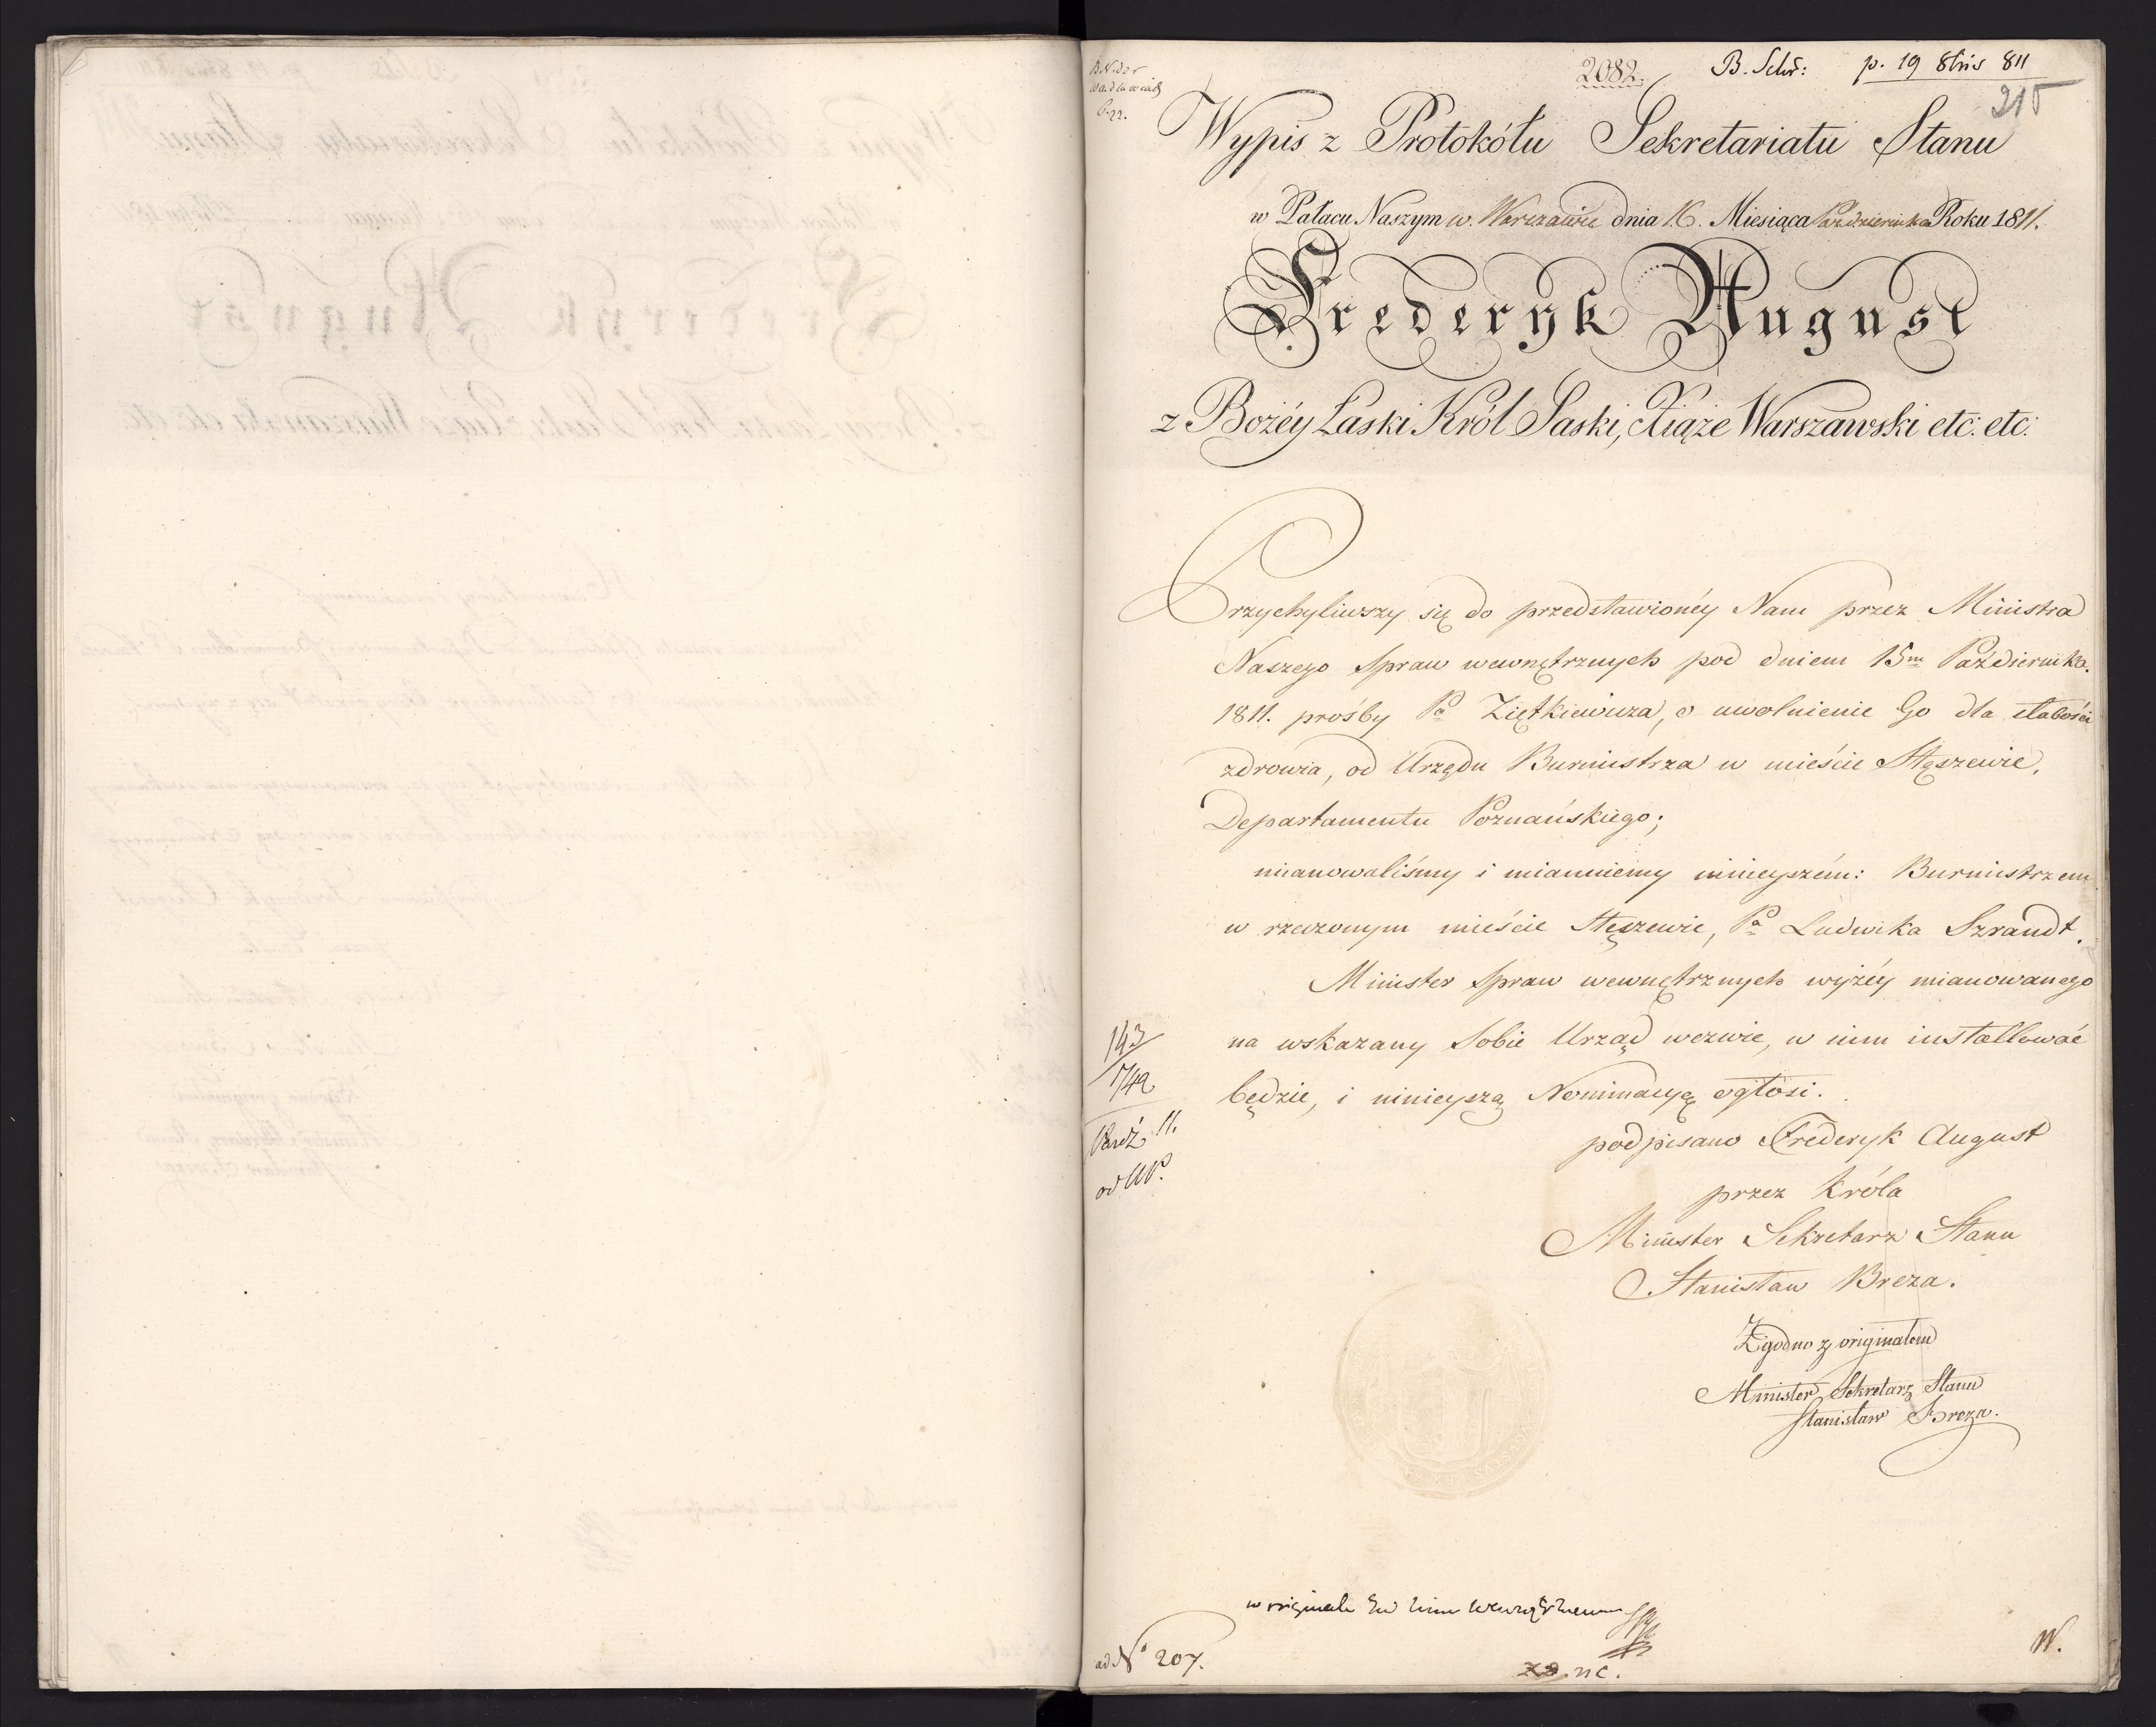 2082. B. Schr: p. 19 8bris 811
215
Wypis z Protokółu Sekretariatu Stanu
w Pałacu Naszym w. Warszawie dnia 16. Miesiąca Października Roku 1811.
Frederyk August
z Bożéy Łaski Król Saski, Xiąże Warszawski etc: etc:
Przychyliwszy się do przedstawionéy Nam przez Ministra
Naszego Spraw wewnętrznych pod dniem 15m Października.
1811. prośby Pa Ziętkiewicza, o uwolnienie Go dla słabości
zdrowia, od Urzędu Burmistrza w mieście Stęszewie,
Departamentu Poznańskiego;
mianowaliśmy i mianuiemy ninieyszém: Burmistrzem
w rzeczonym mieście Stęszewie, Pa Ludwika Szrandt.
Minister Spraw wewnętrznych wyżéy mianowanego
na wskazany Sobie Urząd wezwie, w nim installować
będzie, i ninieyszą Nominacyę ogłosi.
143
1742
Paźd. 11.
od
podpisano Frederyk August
przez Króla
Minister Sekretarz Stanu
Stanisław Breza.
Zgodno z originałem
Minister Sekretarz Stanu
Stanisław Breza.
w originale
ad No 207.
W.